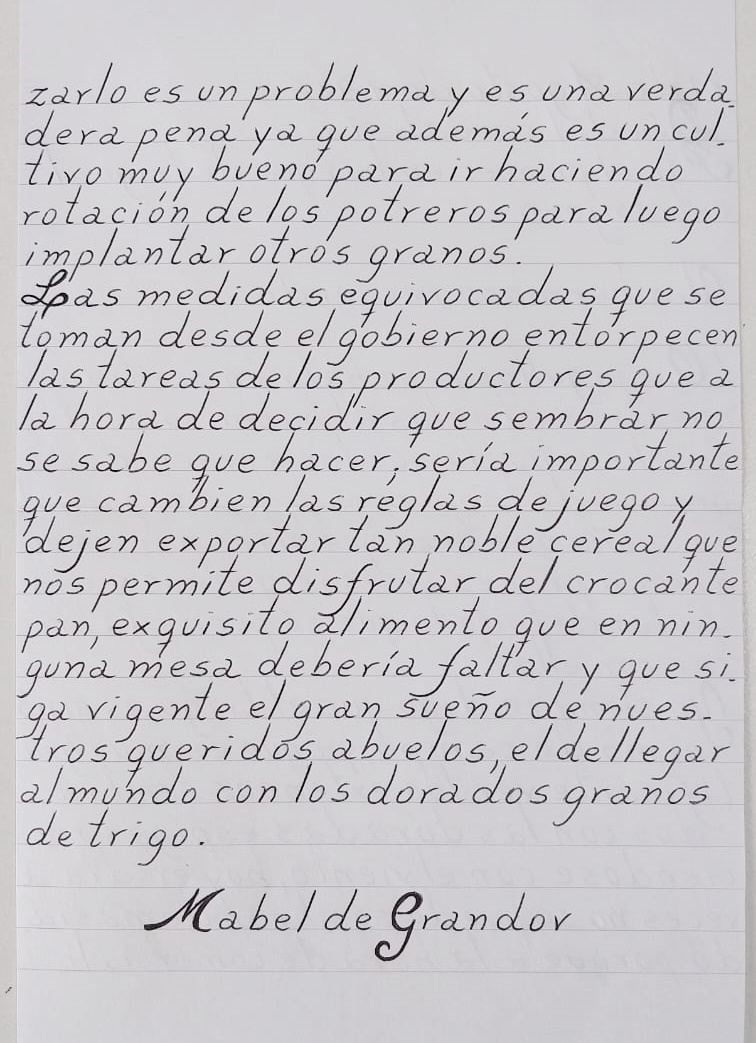 zarlo es un problema y es una verda-
dera pena ya que además es un cul-
tivo muy bueno para ir haciendo
rotación de los potreros para luego
implantar otros granos.
Las medidas equivocadas que se
toman desde el gobierno entorpecen
las tareas de los productores que a
la hora de decidir que sembrar no
se sabe que hacer, sería importante
que cambien las reglas de juego y
dejen exportar tan noble cereal que
nos permite disfrutar del crocante
pan, exquisito alimento que en nin-
guna mesa debería faltar y que si-
ga vigente el gran sueño de nues-
tros queridos abuelos, el de llegar
al mundo con los dorados granos
de trigo.
Mabel de Grandov